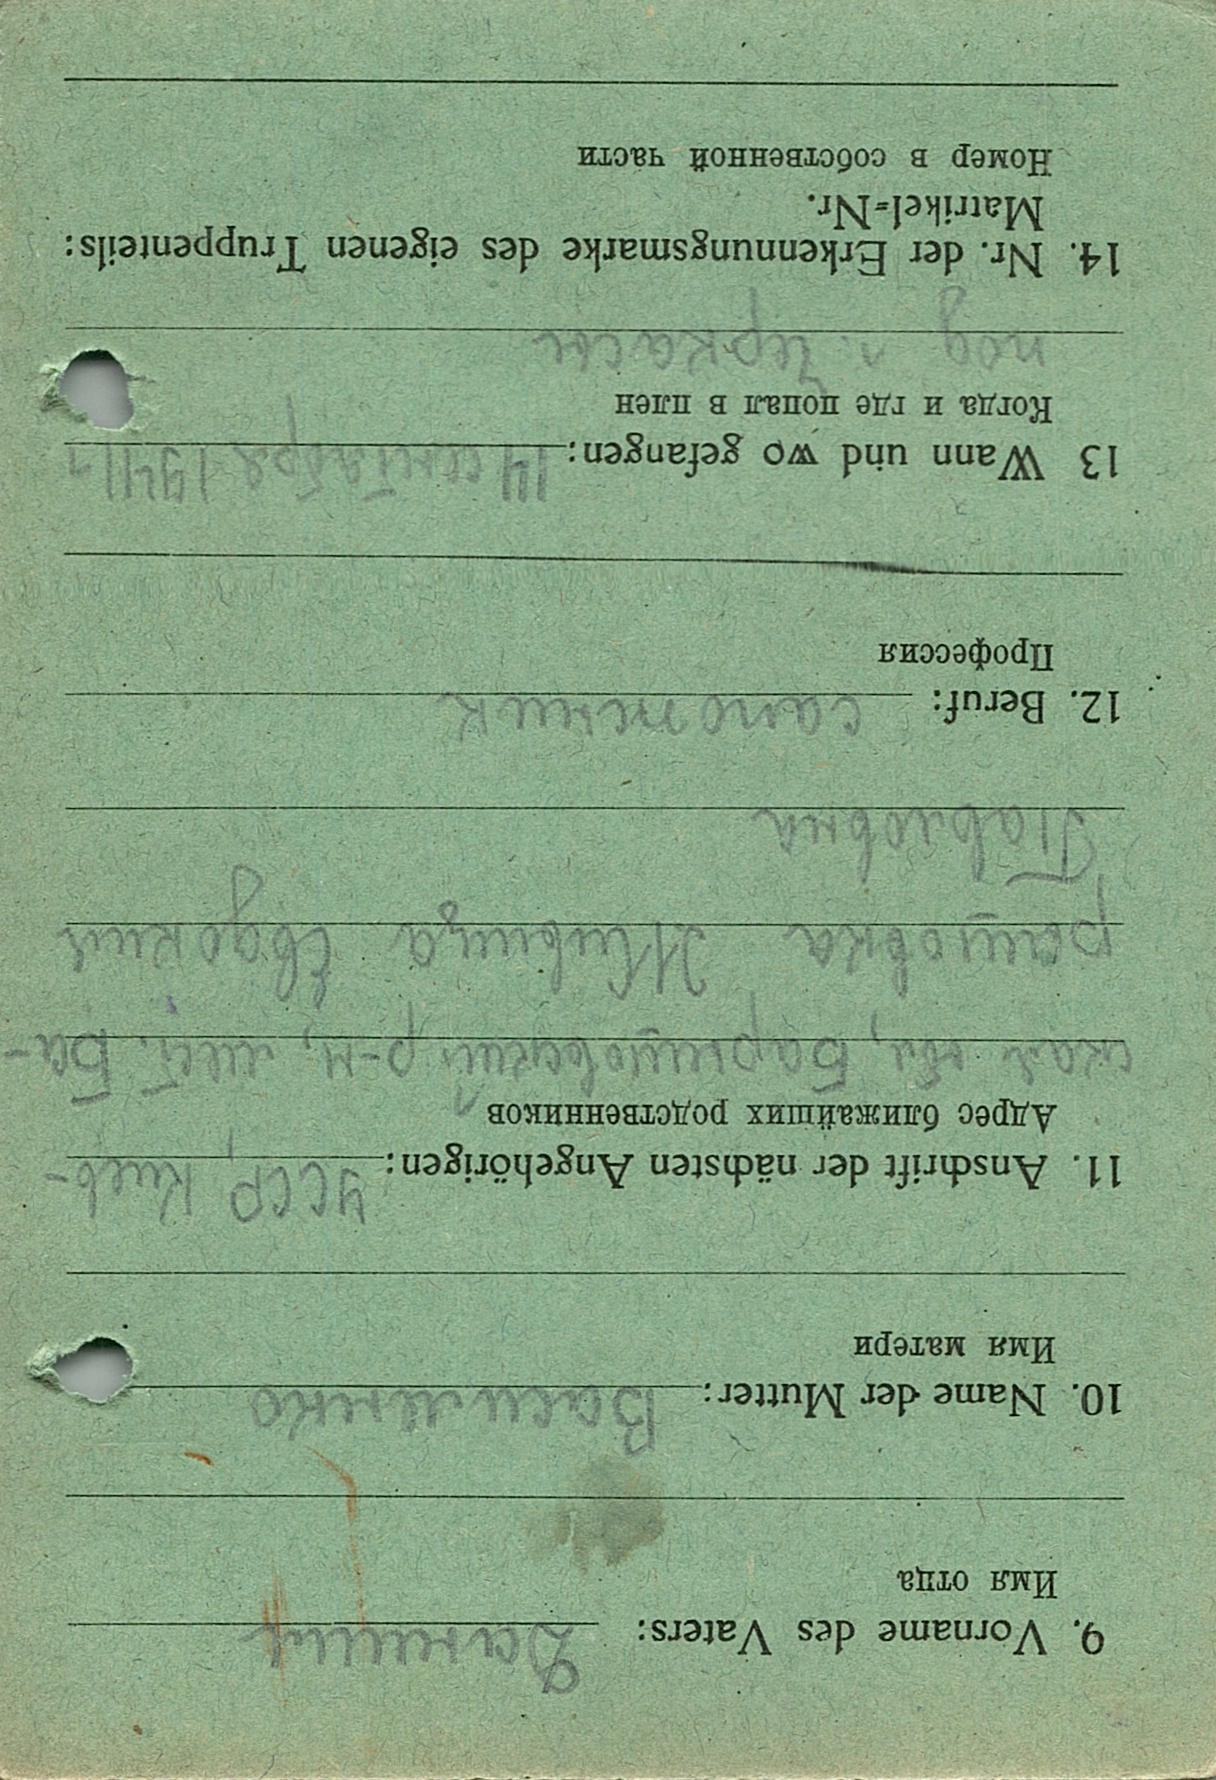 9. Vorname des Vaters: Данило
Имя отца
10. Name der Mutter: Василенко
Имя матери
11. Anschrift der nächsten Angehörigen: УССР, Киев-
Адрес ближайших родственников
ская обл, Барышовский р-н, мест. Ба-
рышовка Живица Евдокия
Павловна
12. Beruf: сапожник
Профессия
13 Wann und wo gefangen: 14 сентября 1941 г
Когда и где попал в плен
под г. Черкасы
14. Nr. der Erkennungsmarke des eigenen Truppenteils:
Matrikel-Nr.
Номер в собственной части